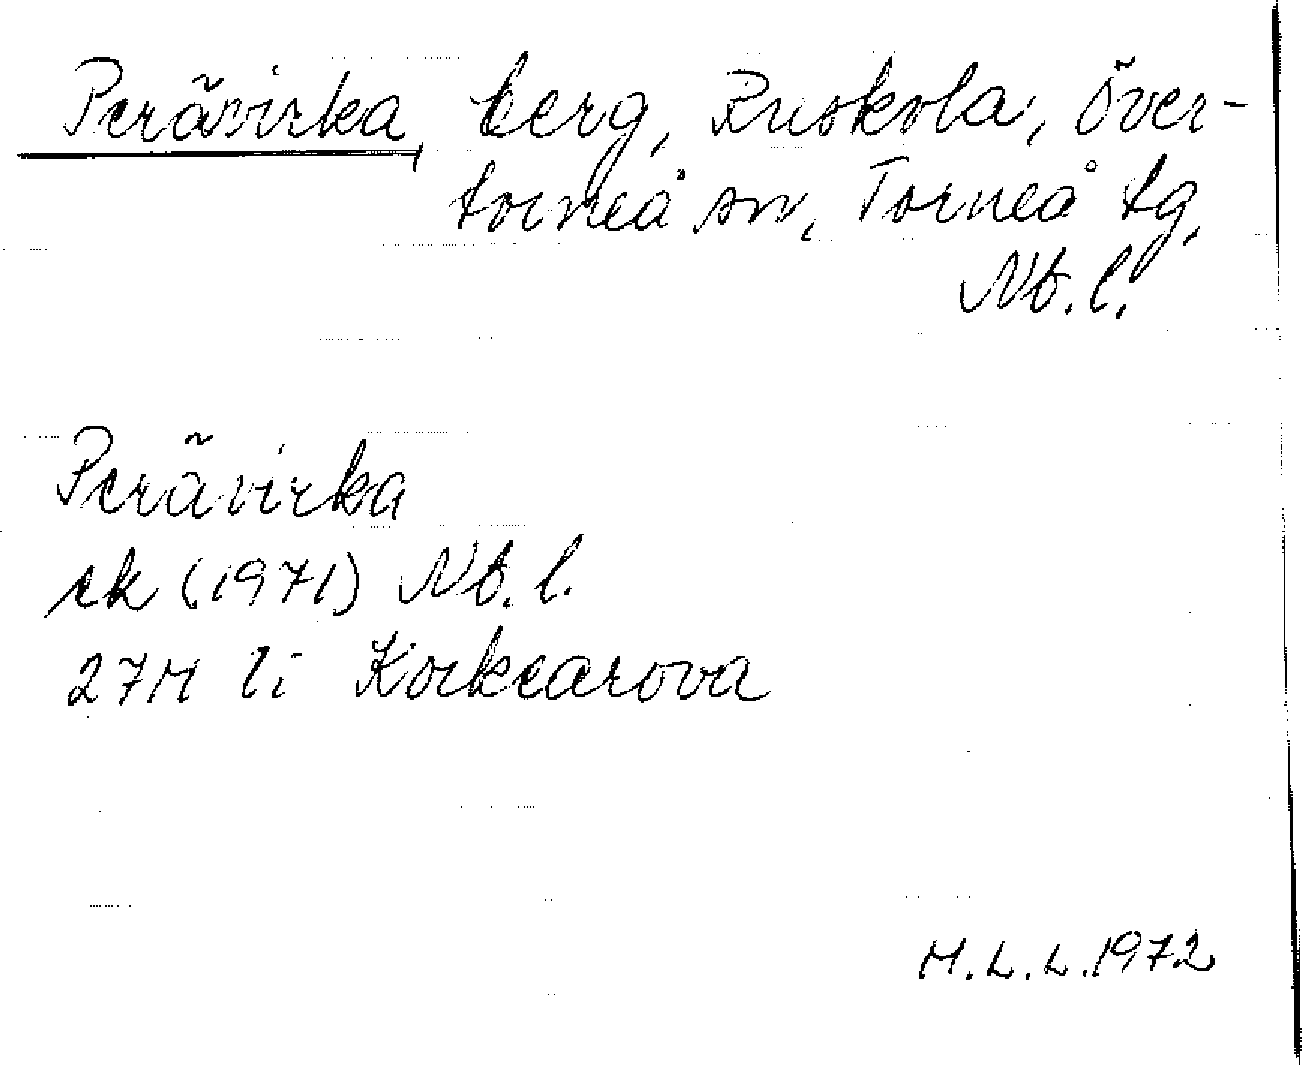 Perävirka, berg, Ruskola, Över-
torneå sn, Torneå tg,
Nb. l.
Perävirka
ek (1971) Nb. l.
27M li Korkearova
H. L. L. 1972